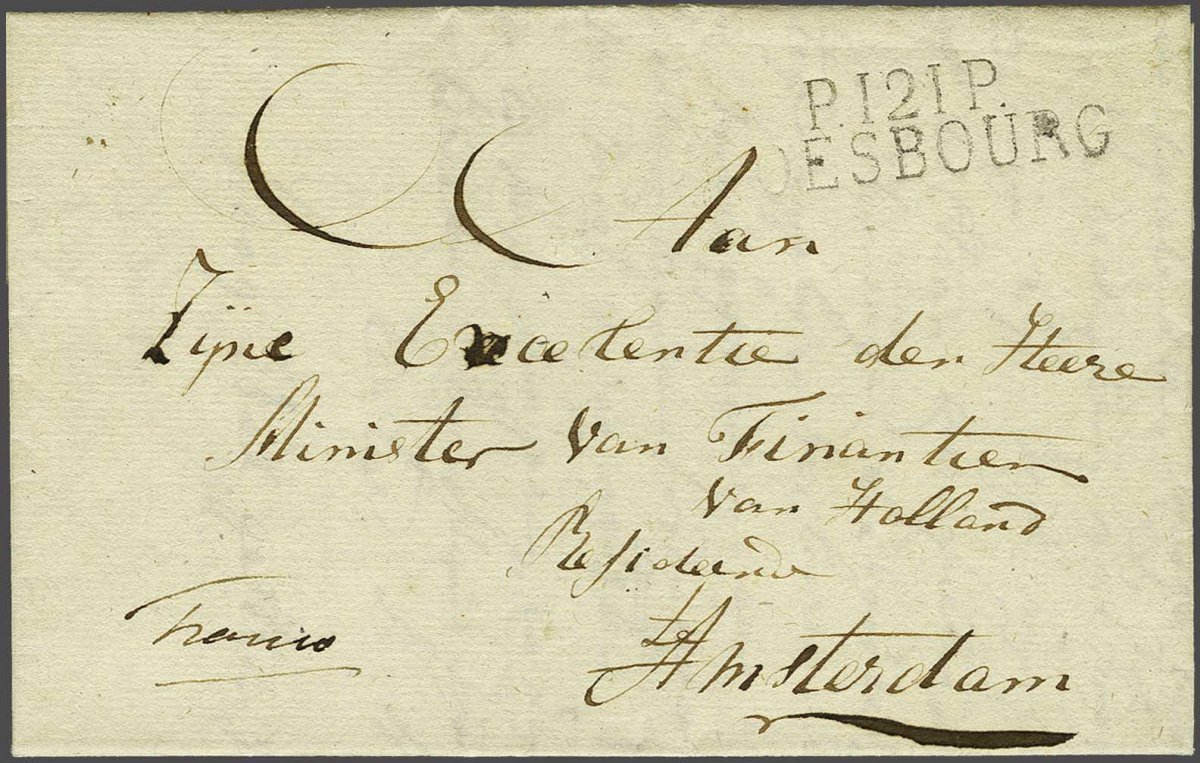 P.121P.
DESBOURG
Aan
Zijne Excelentie den Heere
Minister van Finantien
van Holland
Resideerend
Amsterdam
Franco